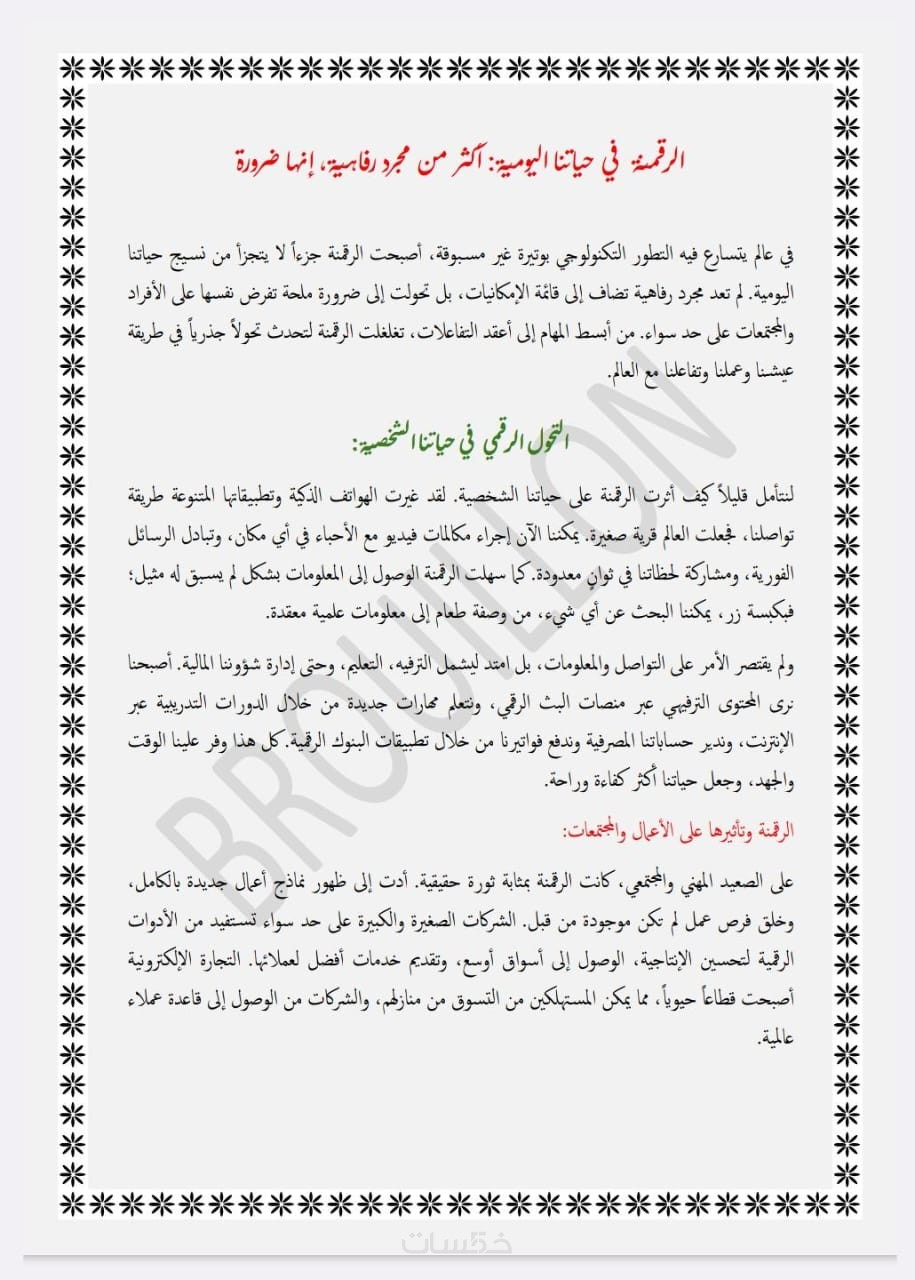 الرقمنة في حياتنا اليومية: أكثر من مجرد رفاهية، إنها ضرورة
في عالم يتسارع فيه التطور التكنولوجي بوتيرة غير مسبوقة، أصبحت الرقمنة جزءاً لا يتجزأ من نسيج حياتنا
اليومية. لم تعد مجرد رفاهية تضاف إلى قائمة الإمكانيات، بل تحولت إلى ضرورة ملحة تفرض نفسها على الأفراد
والمجتمعات على حد سواء. من أبسط المهام إلى أعقد التفاعلات، تغلغلت الرقمنة لتحدث تحولاً جذرياً في طريقة
عيشنا وعملنا وتفاعلنا مع العالم.
التحول الرقمي في حياتنا الشخصية:
لنتأمل قليلاً كيف أثرت الرقمنة على حياتنا الشخصية. لقد غيرت الهواتف الذكية وتطبيقاتها المتنوعة طريقة
تواصلنا، فجعلت العالم قرية صغيرة. يمكننا الآن إجراء مكالمات فيديو مع الأحباء في أي مكان، وتبادل الرسائل
الفورية، ومشاركة لحظاتنا في ثوانٍ معدودة. كما سهلت الرقمنة الوصول إلى المعلومات بشكل لم يسبق له مثيل؛
فبكبسة زر، يمكننا البحث عن أي شيء، من وصفة طعام إلى معلومات علمية معقدة.
ولم يقتصر الأمر على التواصل والمعلومات، بل امتد ليشمل الترفيه، التعليم، وحتى إدارة شؤوننا المالية. أصبحنا
نرى المحتوى الترفيهي عبر منصات البث الرقمي، ونتعلم مهارات جديدة من خلال الدورات التدريبية عبر
الإنترنت، وندير حساباتنا المصرفية وندفع فواتيرنا من خلال تطبيقات البنوك الرقمية. كل هذا وفر علينا الوقت
والجهد، وجعل حياتنا أكثر كفاءة وراحة.
الرقمنة وتأثيرها على الأعمال والمجتمعات:
على الصعيد المهني والمجتمعي، كانت الرقمنة بمثابة ثورة حقيقية. أدت إلى ظهور نماذج أعمال جديدة بالكامل،
وخلق فرص عمل لم تكن موجودة من قبل. الشركات الصغيرة والكبيرة على حد سواء تستفيد من الأدوات
الرقمية لتحسين الإنتاجية، الوصول إلى أسواق أوسع، وتقديم خدمات أفضل لعملائها. التجارة الإلكترونية
أصبحت قطاعاً حيوياً، مما يمكن المستهلكين من التسوق من منازلهم، والشركات من الوصول إلى قاعدة عملاء
عالمية.
BROUILLON
خمسات